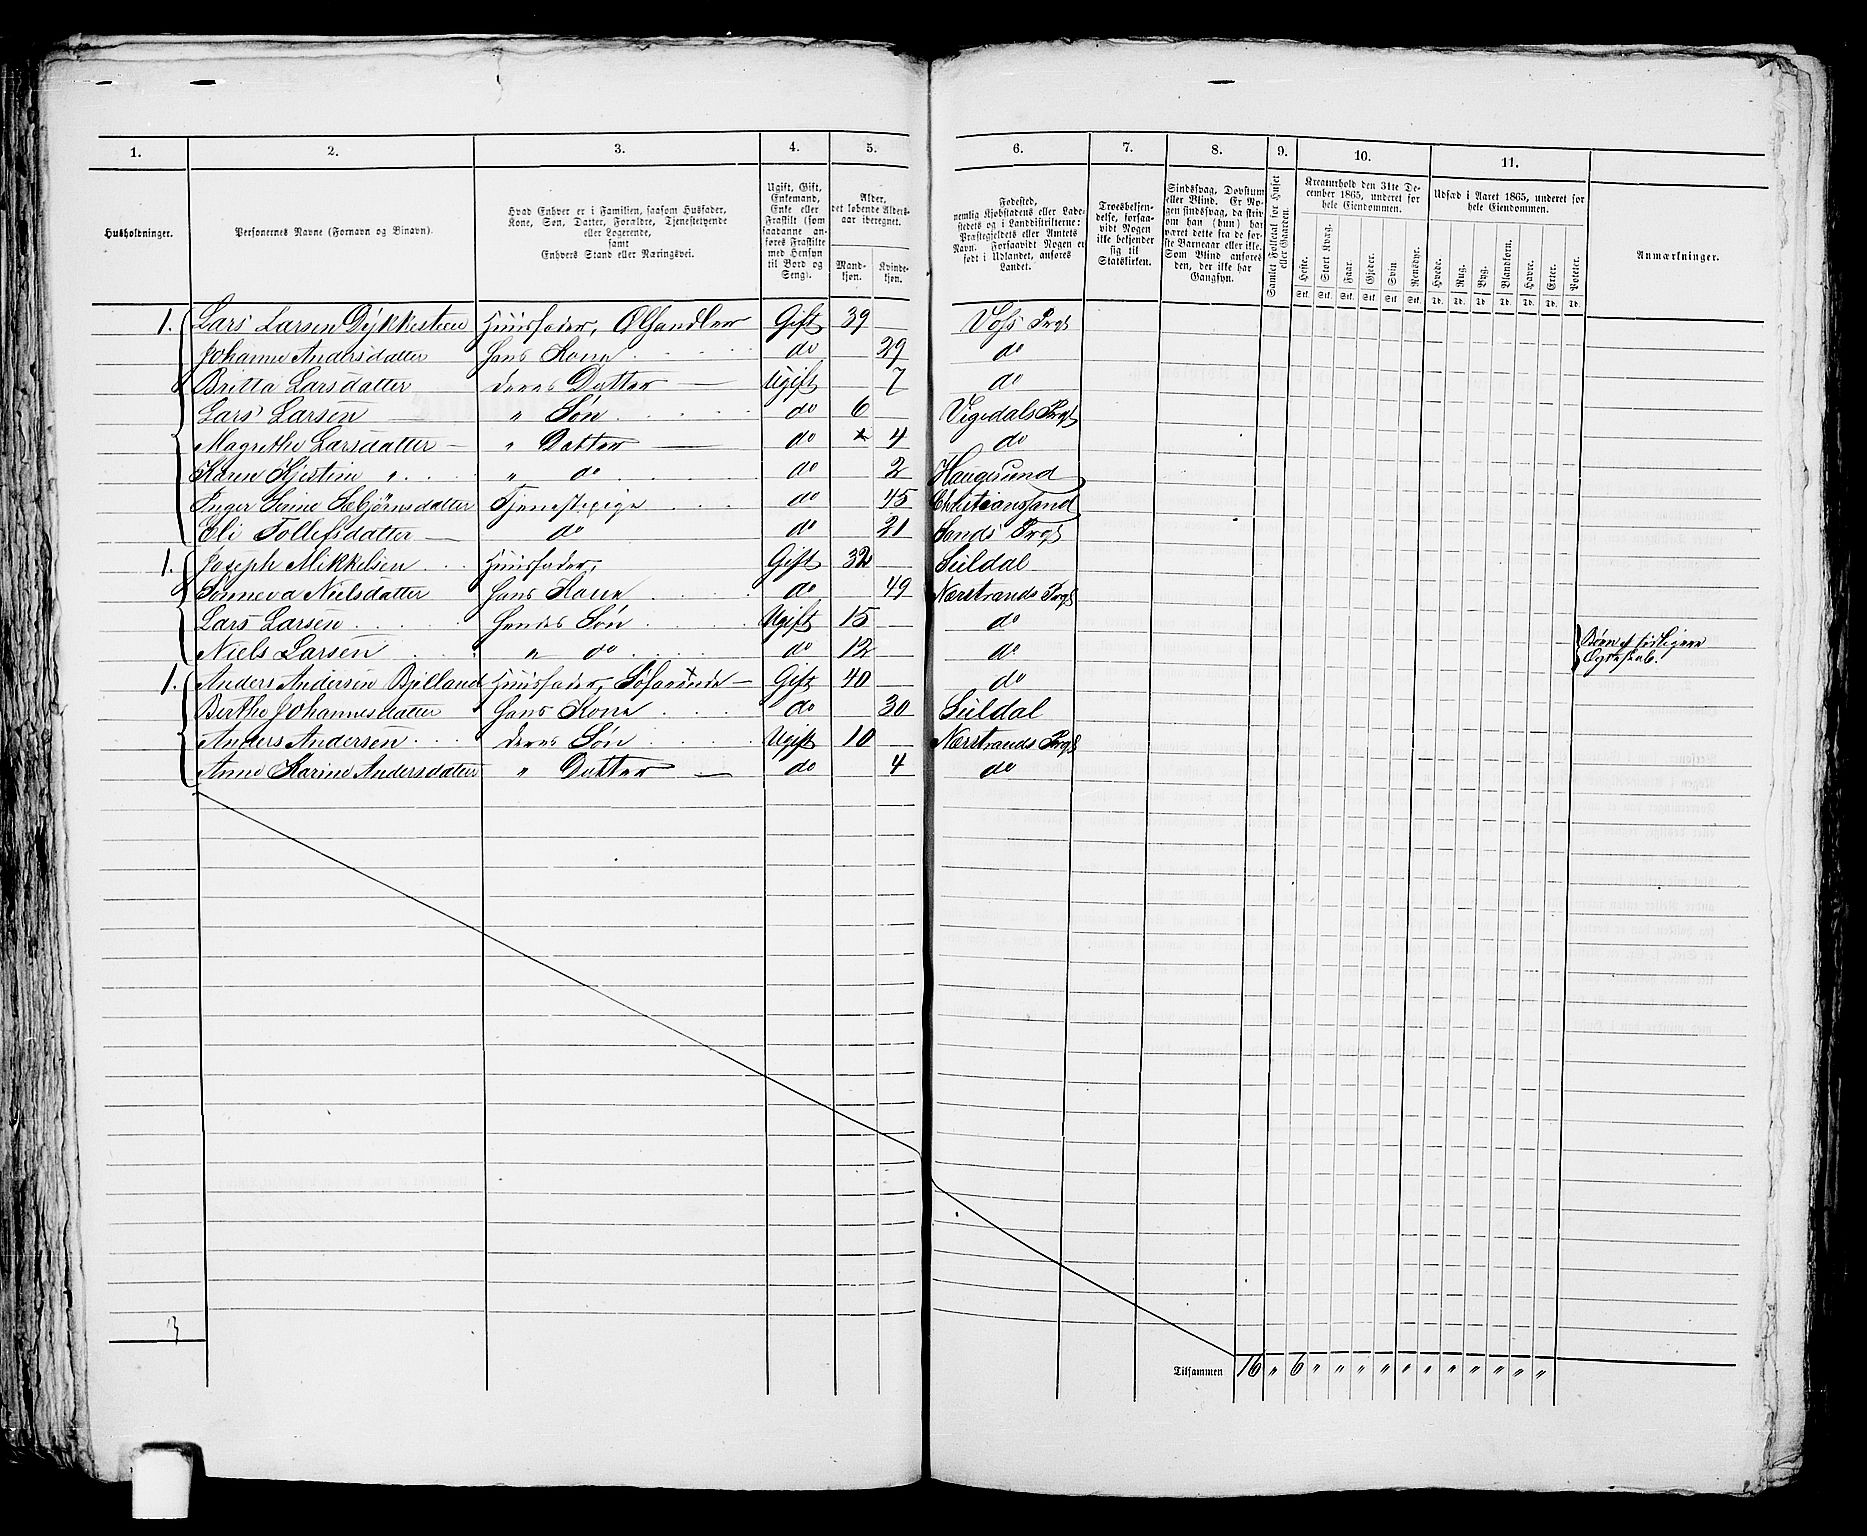 1. 2. 3. 4. 5. 6. 7. 8. 9. 10. 11.
Husholdninger.
Personernes Navne (Fornavn og Binavn).
Hvad Enhver er i Familien, saasom Husfader,
Kone, Søn, Datter, Forældre, Tjenestetyende
eller Logerende,
samt
Enhvers Stand eller Næringsvei.
Ugift, Gift,
Enkemand,
Enke eller
Fraskilt (som
saadanne an-
føres Fraskilte
med Hensyn
til Bord og
Seng).
Alder,
det løbende Alders-
aar iberegnet.
Mand-
kjøn.
Kvinde-
kjøn.
Fødested,
nemlig Kjøbstadens eller Lade-
stedets og i Landdistrikterne:
Præstegjeldets eller Amtets
Navn. Forsaavidt Nogen er
født i Udlandet, anføres
Landet.
Troesbekjen-
delse, forsaa-
vidt Nogen
ikke bekjender
sig til
Statskirken.
Sindssvag, Døvstum
eller Blind. Er No-
gen sindssvag, da skriv
om han (hun) har
været dette fra de før-
ste Barneaar eller ikke.
Som Blind anføres
den, der ikke har
Gangsyn.
Samlet Folketal for Huset
eller Gaarden.
Kreaturhold den 31te De-
cember 1865, underet for
hele Eiendommen.
Heste. Stort Kvæg. Faar. Gjeder. Svin Rensdyr.
Stk. Stk. Stk. Stk. Stk. Stk.
Udsæd i Aaret 1865, underet for
hele Eiendommen.
Hvede. Rug. Byg. Blandkorn. Havre. Erter. Poteter.
Td. Td. Td. Td. Td. Td. Td.
Anmærkninger.
1. Lars Larsen Dykkesteen Huusfader, Ølhandler Gift 39 Vofs Prgj
Johanne Andersdatter hans Kone do 29 do
Britta Larsdatter deres Datter Ugift 7 do
Lars Larsen " Søn do 6 Vigedals Prgj
Magrethe Larsdatter " Datter do 4 do
Karen Kjestine " " do do 2 Haugesund
Inger Sbjørnsdatter Tjenestepige do 45 Christianssand
Eli Tollefsdatter do do 21 Sands Prgj
1. Joseph Mikkelsen Huusfader, Gift 32 Suldal
Sønneva Nielsdatter hans Kone do 49 Nærstrands Prgj
Lars Larsen hendes Søn Ugift 15 do
Niels Larsen " do do 12 do Børn af forligere
Ægteskab.
1. Anders Andersen Bjelland Huusfader, Søfarende Gift 40 do
Berthe Johannesdatter hans Kone do 30 Suldal
Anders Andersen deres Søn Ugift 10 Nærstrands Prgj
Anne Karine Andersdatter " Datter do 4 do
3
Tilsammen 16 " 6 " " " " " " " " " " "